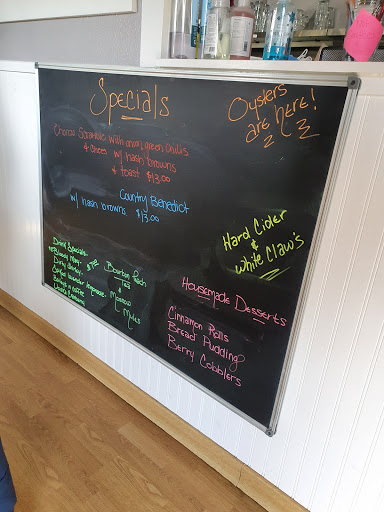 Specials
Oysters
are here!
Chorizo Scramble with onion, green chilis
& cheese w/ hash browns
& toast $13.00
Country Benedict
w/ hash browns $13.00
Hard Cider
&
White Claw's
Drink Specials
Bloody Mary
Bourbon Peach
Tea
Moscow
Mules
Housemade Desserts
Cinnamon Rolls
Bread Pudding
Berry Cobblers